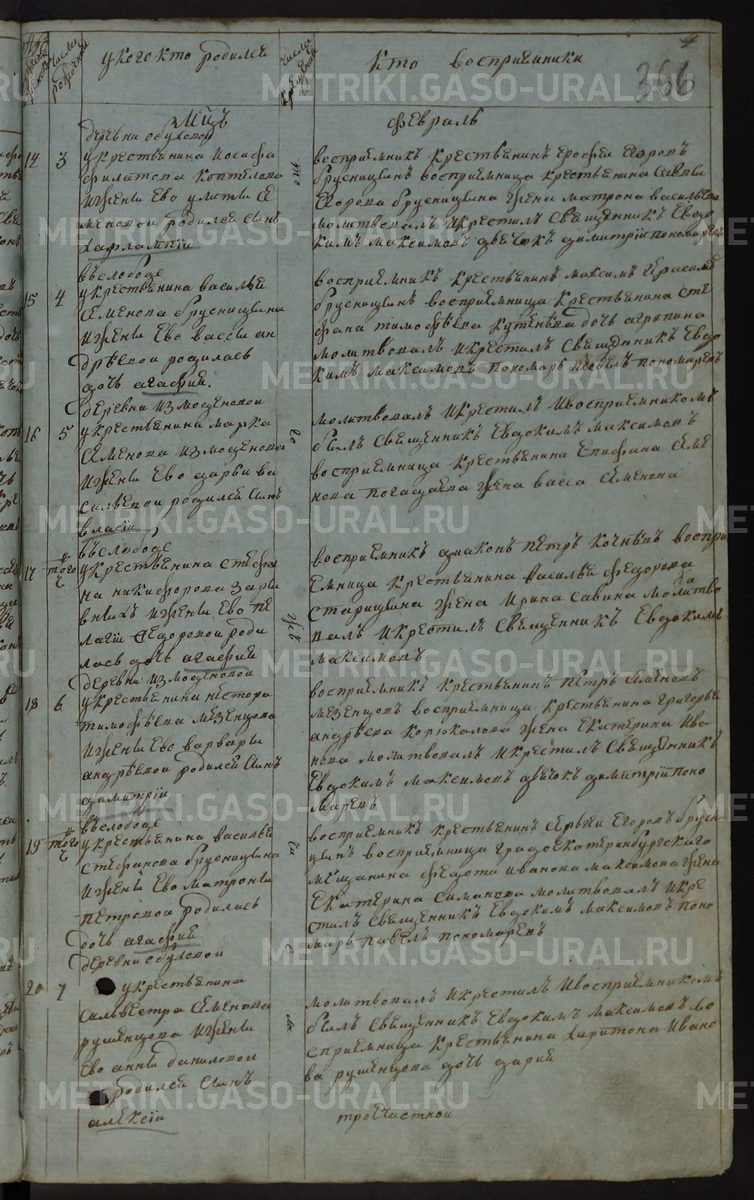 укого кто родился
Кто восприемники
366
мцъ
февраль
деревни обуховой
14 3 укрестьянина иосифа
филатова коптелова
ижены Ево улиты се
меновой родился сынъ
харлампiи
восприемникъ крестьянинъ ерофеи Егоровъ
брусницынъ восприемница крестьянина саввы
Егорова брусницына жена матрона васильева
молитвовалъ икрестилъ священникъ Евдо
кимъ максимовъ дьячокъ димитрiи пономаревъ
въслободе
15 4 укрестьянина василья
семенова брусницына
ижены Ево вассы ан
дреевой родилась
дочь агафия
восприемникъ крестьянинъ максимъ герасимовъ
брусницынъ восприемница крестьянина сте
фана тимофеева дочь агрипина
молитвовалъ икрестилъ священникъ Евдо
кимъ максимовъ пономарь павелъ пономаревъ
деревни измоденовой
16 5 укрестьянина марка
семенова измоденова
ижены Ево дарьи ва
сильевой родился сынъ
власiи
молитвовалъ икрестилъ ивосприемникомъ
былъ священникъ Евдокимъ максимовъ
восприемница крестьянина Епифана семе
нова погадаева жена васса семенова
въслободе
17 того ч укрестьянина стефа
на никифорова
ижены Ево пе
лагiи Федоровой роди
лась дочь агафия
восприемникъ дьяконъ петръ кочневъ воспри
емница крестьянина василья федорова
старицына жена ирина савина молитво
валъ икрестилъ священникъ Евдокимъ
максимовъ
деревни измоденовой
18 6 укрестьянина нестора
тимофеева мезенцова
ижены Ево варвары
андреевой родился сынъ
димитрiи
восприемникъ крестьянинъ петръ семеновъ
мезенцовъ восприемница крестьянина григорья
андреева корюкалова жена Екатерина ива
нова молитвовалъ икрестилъ священникъ
Евдокимъ максимовъ дьячокъ димитрiи поно
маревъ
въслободе
19 того ч укрестьянина василья
стефанова брусницына
ижены Ево матроны
петровой родилась
дочь агафия
восприемникъ крестьянинъ сергеи Егоровъ брусни
цынъ восприемница градоекатеринбургскаго
мещанина федота иванова максимова жена
Екатерина симанова молитвовалъ икре
стилъ священникъ Евдокимъ максимовъ поно
марь павелъ пономаревъ
деревни обуховой
20 7 укрестьянина
сильвестра семенова
рушенцова ижены
Ево анны даниловой
родился сынъ
алексiи
молитвовалъ икрестилъ ивосприемникомъ
былъ священникъ Евдокимъ максимовъ во
сприемница крестьянина харитона ивано
ва рушенцова дочь дария
METRIKI.GASO-URAL.RU